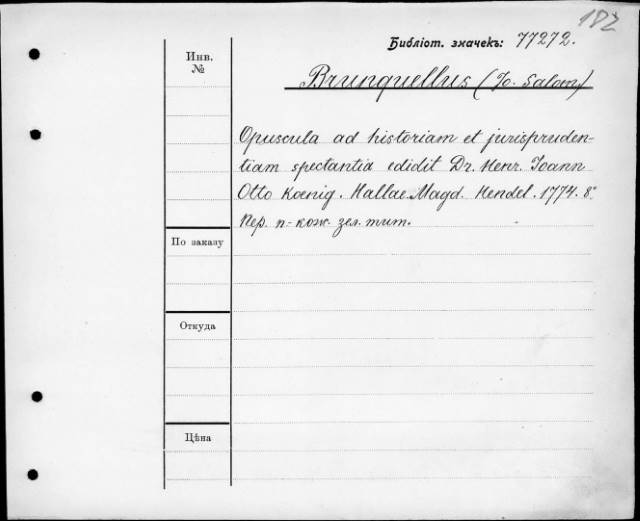 182
Библіот. значекъ: 77272.
Инв.
№
Brunquellus (Jo. Salom)
Opuscula ad historiam et jurispruden-
tiam spectantia edidit Dr. Henr. Joann
Otto Koenig. Hallae Magd. Hendel. 1774. 8°
Пер. п.-кож. зел. тит.
По заказу
Откуда
Цѣна